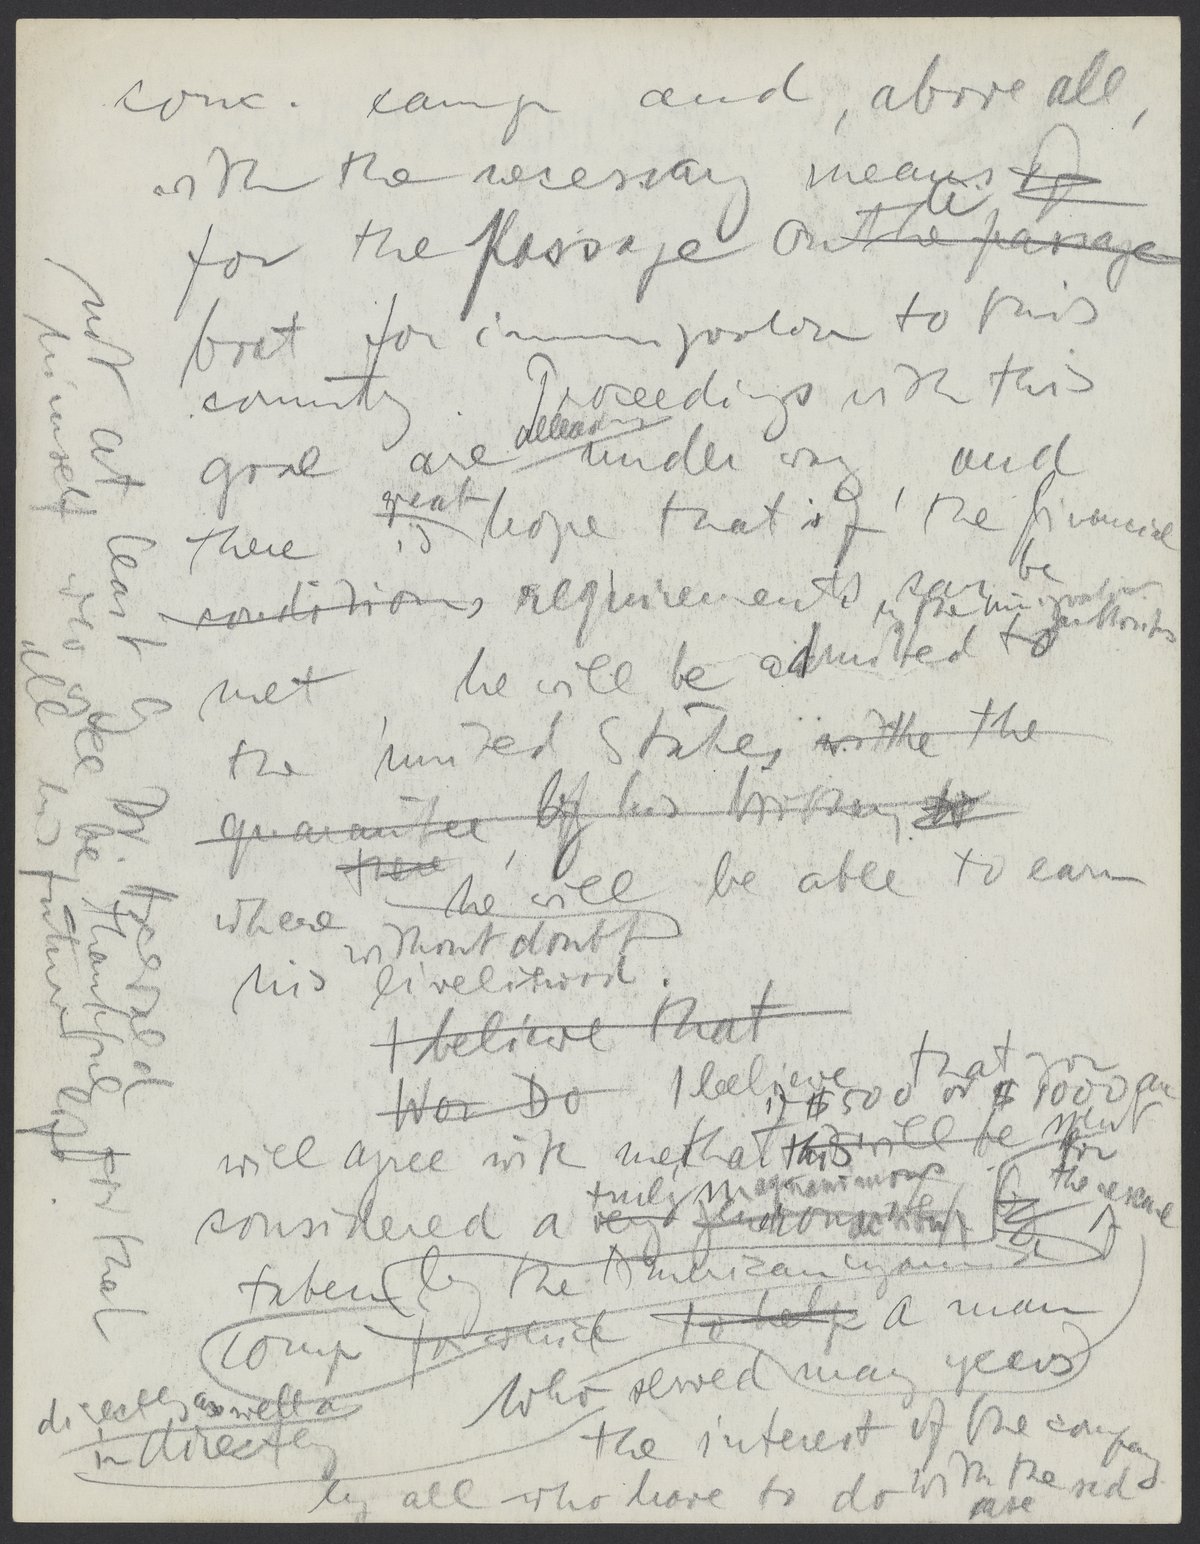 conc. camp and, above all,
with the necessary means
for the Passage on the passage
boat for immigration to this
country. Proceedings with this
goal are already under way, and
there is great hope that if, the financial
conditions requirements can be
in the immigration authorities
met, he will be admitted to
the United States, withe the
guarantee of his
where he will be able to earn
without doubt
his livelihood.
I believe that
Wor Do I believe that you
if $500 or $1000 are
will agree with me that this will be spent
for the rescue
truly magnanimous
considered a very
taken by the American
comp to help a man
who served many years
directly as well as
indirectly
the interest of the company
by all who have to do with the sad
case
not at least by Dr. Herald
himself who will be thankful for that
all his future life.